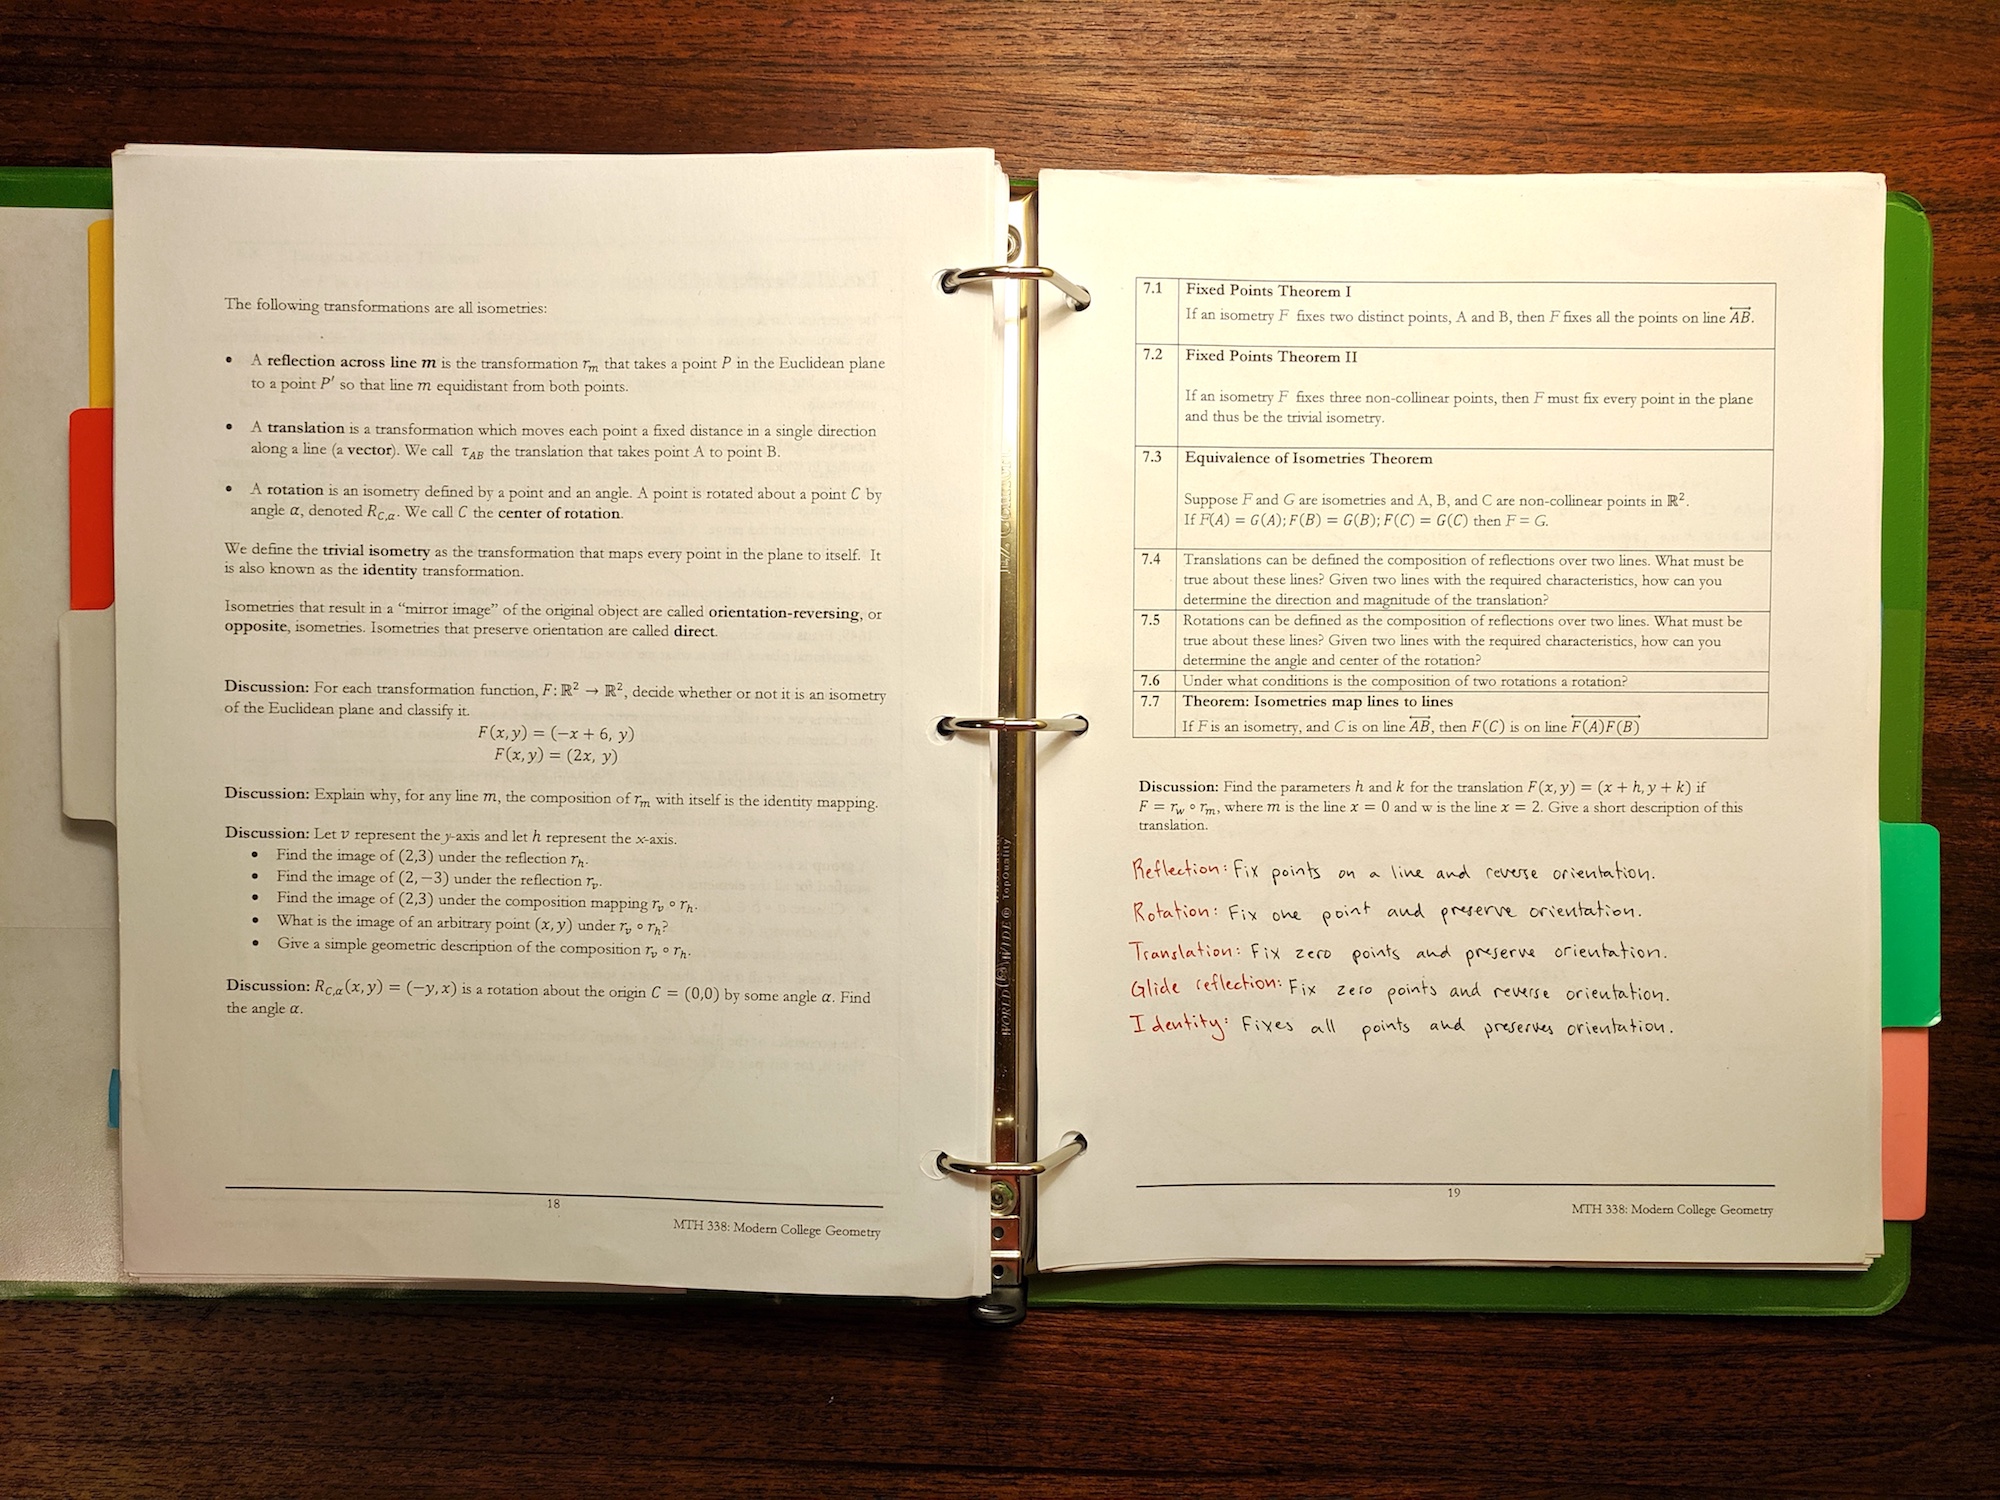 The following transformations are all isometries:
• A reflection across line m is the transformation rₘ that takes a point P in the Euclidean plane
to a point P′ so that line m equidistant from both points.
• A translation is a transformation which moves each point a fixed distance in a single direction
along a line (a vector). We call τ_AB the translation that takes point A to point B.
• A rotation is an isometry defined by a point and an angle. A point is rotated about a point C by
angle α, denoted R_C,α. We call C the center of rotation.
We define the trivial isometry as the transformation that maps every point in the plane to itself. It
is also known as the identity transformation.
Isometries that result in a “mirror image” of the original object are called orientation-reversing, or
opposite, isometries. Isometries that preserve orientation are called direct.
Discussion: For each transformation function, F: ℝ² → ℝ², decide whether or not it is an isometry
of the Euclidean plane and classify it.
F(x, y) = (−x + 6, y)
F(x, y) = (2x, y)
Discussion: Explain why, for any line m, the composition of rₘ with itself is the identity mapping.
Discussion: Let v represent the y-axis and let h represent the x-axis.
• Find the image of (2,3) under the reflection r_h.
• Find the image of (2, −3) under the reflection r_v.
• Find the image of (2,3) under the composition mapping r_v ∘ r_h.
• What is the image of an arbitrary point (x, y) under r_v ∘ r_h?
• Give a simple geometric description of the composition r_v ∘ r_h.
Discussion: R_C,α(x, y) = (−y, x) is a rotation about the origin C = (0,0) by some angle α. Find
the angle α.
18
MTH 338: Modern College Geometry
WORLD WIDE ® TopQuality
7.1 Fixed Points Theorem I
If an isometry F fixes two distinct points, A and B, then F fixes all the points on line AB.
7.2 Fixed Points Theorem II
If an isometry F fixes three non-collinear points, then F must fix every point in the plane
and thus be the trivial isometry.
7.3 Equivalence of Isometries Theorem
Suppose F and G are isometries and A, B, and C are non-collinear points in ℝ².
If F(A) = G(A); F(B) = G(B); F(C) = G(C) then F = G.
7.4 Translations can be defined the composition of reflections over two lines. What must be
true about these lines? Given two lines with the required characteristics, how can you
determine the direction and magnitude of the translation?
7.5 Rotations can be defined as the composition of reflections over two lines. What must be
true about these lines? Given two lines with the required characteristics, how can you
determine the angle and center of the rotation?
7.6 Under what conditions is the composition of two rotations a rotation?
7.7 Theorem: Isometries map lines to lines
If F is an isometry, and C is on line AB, then F(C) is on line F(A)F(B)
Discussion: Find the parameters h and k for the translation F(x, y) = (x + h, y + k) if
F = r_w ∘ rₘ, where m is the line x = 0 and w is the line x = 2. Give a short description of this
translation.
Reflection: Fix points on a line and reverse orientation.
Rotation: Fix one point and preserve orientation.
Translation: Fix zero points and preserve orientation.
Glide reflection: Fix zero points and reverse orientation.
Identity: Fixes all points and preserves orientation.
19
MTH 338: Modern College Geometry